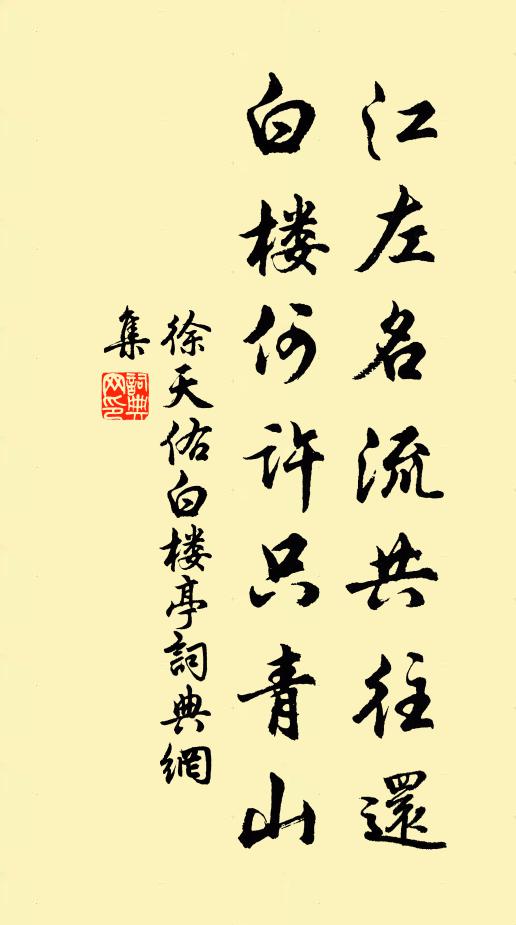 江左名流共往還
白楼何许只青山
徐天佑白楼亭詞典網
集
詞典
网印